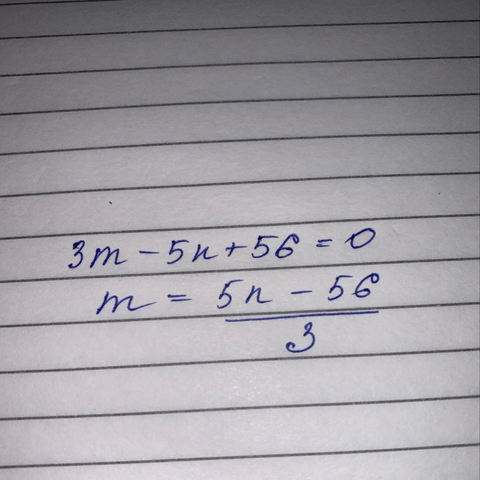 3m - 5n + 56 = 0
m = 5n - 56
3